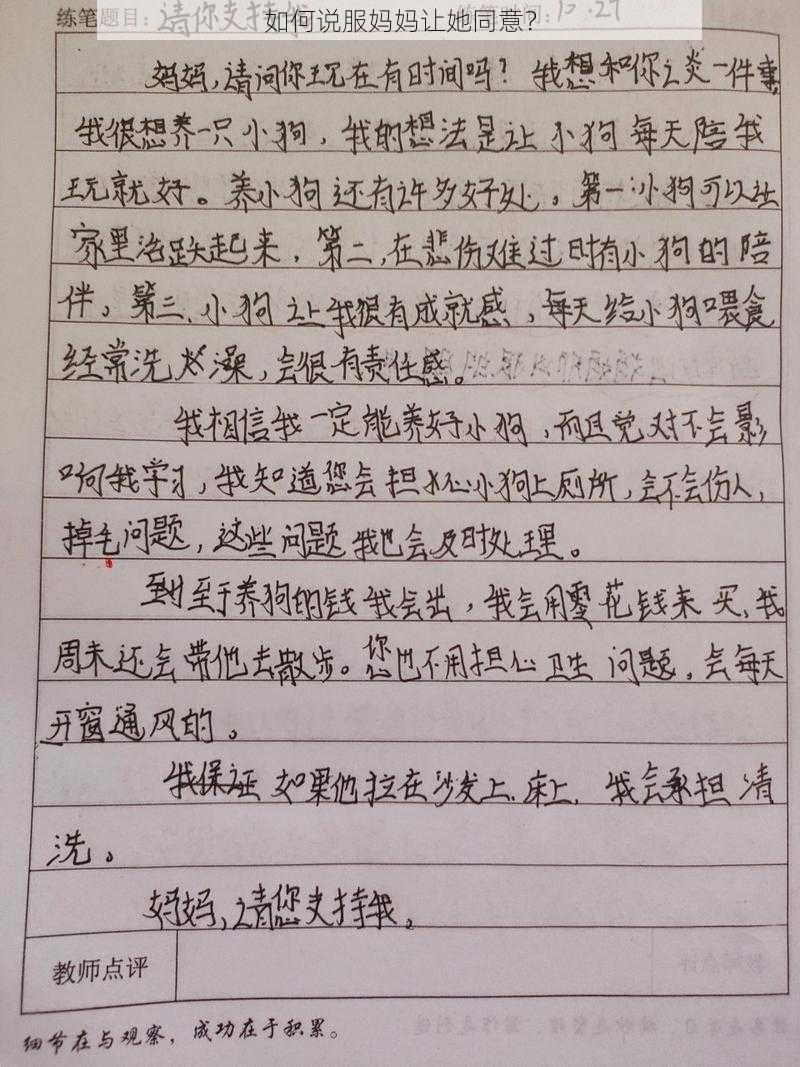 如何说服妈妈让她同意?
练笔题目：请你支持我 10.27
妈妈,请问你现在有时间吗? 我想和你谈一件事,
我很想养一只小狗，我的想法是让小狗每天陪我
玩就好。养小狗还有许多好处。第一:小狗可以让
家里活跃起来，第二,在悲伤难过时有小狗的陪
伴。第三.小狗让我很有成就感，每天给小狗喂食
经常洗澡，会很有责任感。
我相信我一定能养好小狗，而且绝对不会影
响我学习，我知道您会担心小狗上厕所，会不会伤人，
掉毛问题，这些问题我也会及时处理。
至于养狗的钱我会出，我会用零花钱来买,我
周末还会带他去散步。您也不用担心卫生问题。会每天
开窗通风的。
我保证如果他拉在沙发上.床上.我会承担清
洗。
妈妈,请您支持我。
教师点评
细节在与观察，成功在于积累。